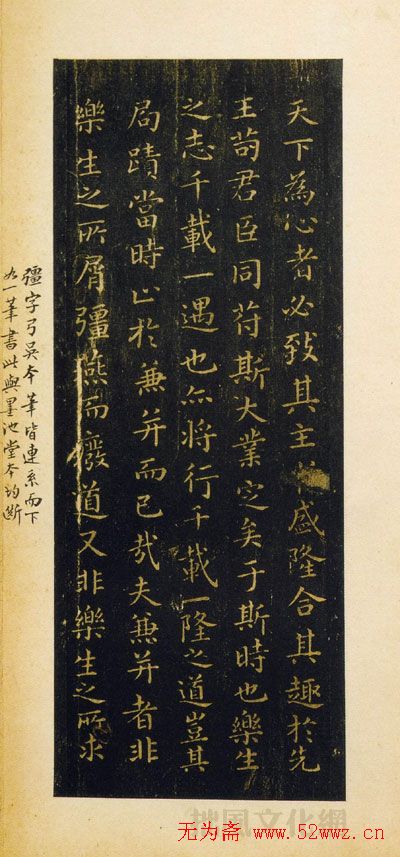 天下為心者必致其主於盛隆合其趣於先
王苟君臣同符斯大業定矣于斯時也樂生
之志千載一遇也亦將行千載一隆之道豈其
局蹟當時止於兼并而已哉夫兼并者非
樂生之所屑彊燕而廢道又非樂生之所求
彊字弓吳本筆皆連系而下
如一筆書此與墨池堂本均斷
拙風文化網
无为斋 www.52wwz.cn